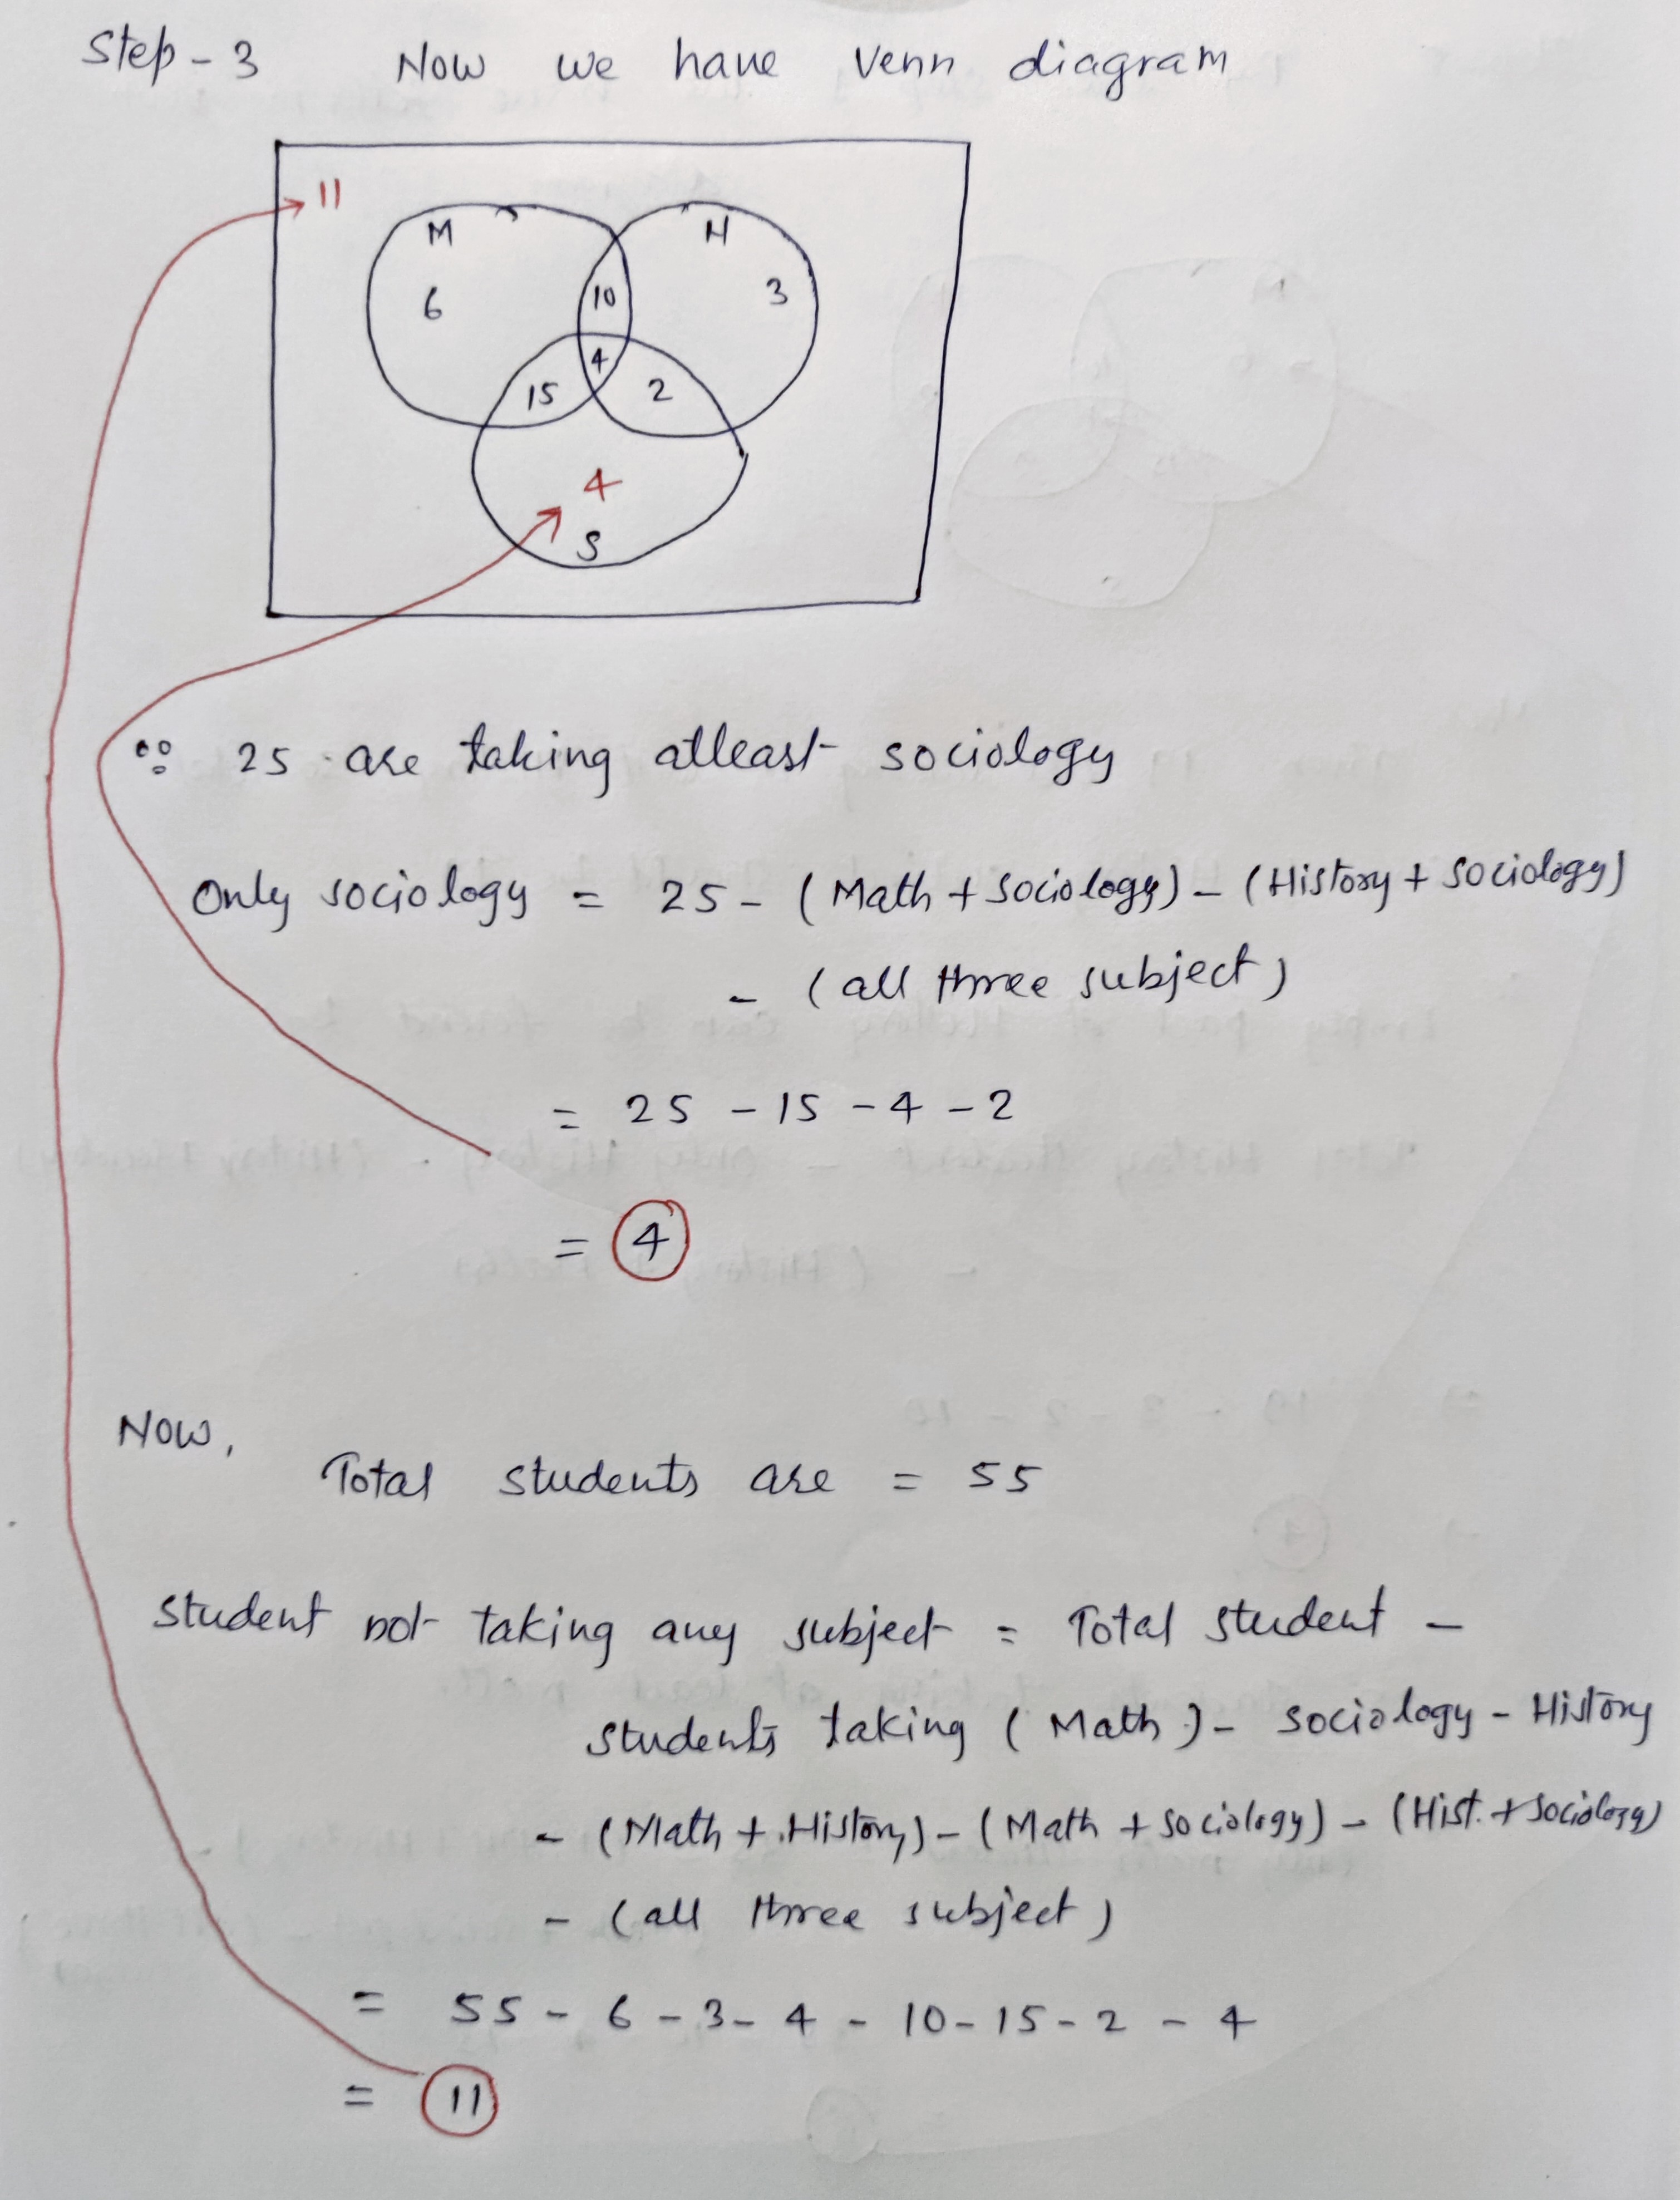 Step-3 Now we have Venn diagram
11
M H
6 10 3
4
15 2
4
S
∵ 25 are taking atleast sociology
Only sociology = 25 - (Math + Sociology) - (History + Sociology)
- (all three subject)
= 25 - 15 - 4 - 2
= 4
Now,
Total students are = 55
Student not taking any subject = Total student -
students taking (Math) - sociology - History
- (Math + History) - (Math + sociology) - (Hist. + Sociology)
- (all three subject)
= 55 - 6 - 3 - 4 - 10 - 15 - 2 - 4
= 11